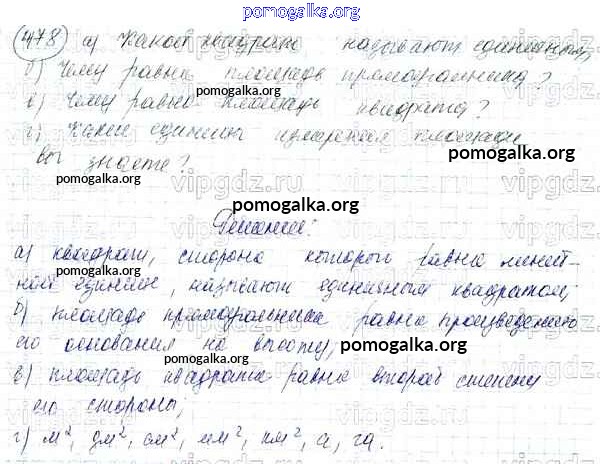 pomogalka.org
478 а) Какой квадрат называют единичным,
б) Чему равна площадь прямоугольника?
в) Чему равна площадь квадрата?
г) Какие единицы измерения площади
вы знаете?
Решение:
а) квадрат, сторона которого равна линей-
ной единице, называют единичным квадратом;
б) площадь прямоугольника равна произведению
его основания на высоту;
в) площадь квадрата равна второй степени
его стороны;
г) м², дм², см², мм², км², а, га.
pomogalka.org